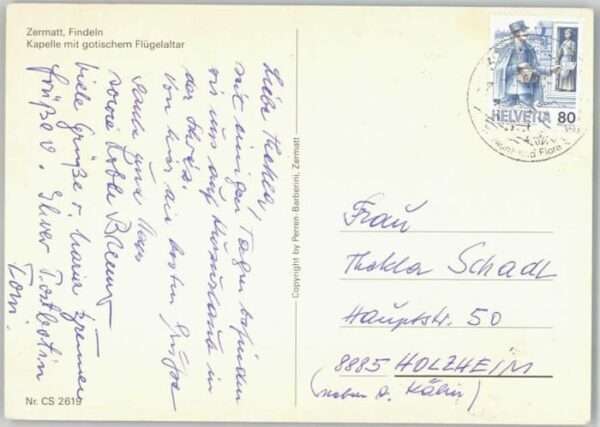 Zermatt, Findeln
Kapelle mit gotischem Flügelaltar
Liebe Thekla,
seit einigen Tagen befinden
wir uns auf Kurzurlaub in
der Schweiz.
von hier die besten Grüße
viele Grüße v. Maria
Grüße v. Ihrer Postbotin
Toni.
Nr. CS 2619
Copyright by Perren-Barberini, Zermatt
HELVETIA 80
Flora
Frau
Thekla Schadl
Hauptstr. 50
8885 HOLZHEIM
(neben d.